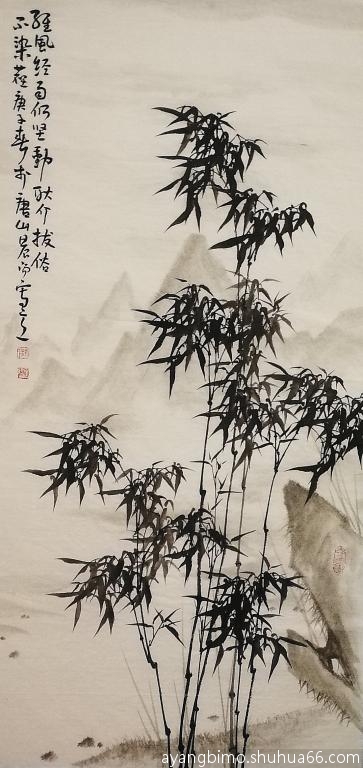 經風经雨仍坚勁耿介拔俗
不染 庚子春 于唐山
ayangbimo.shuhua66.com